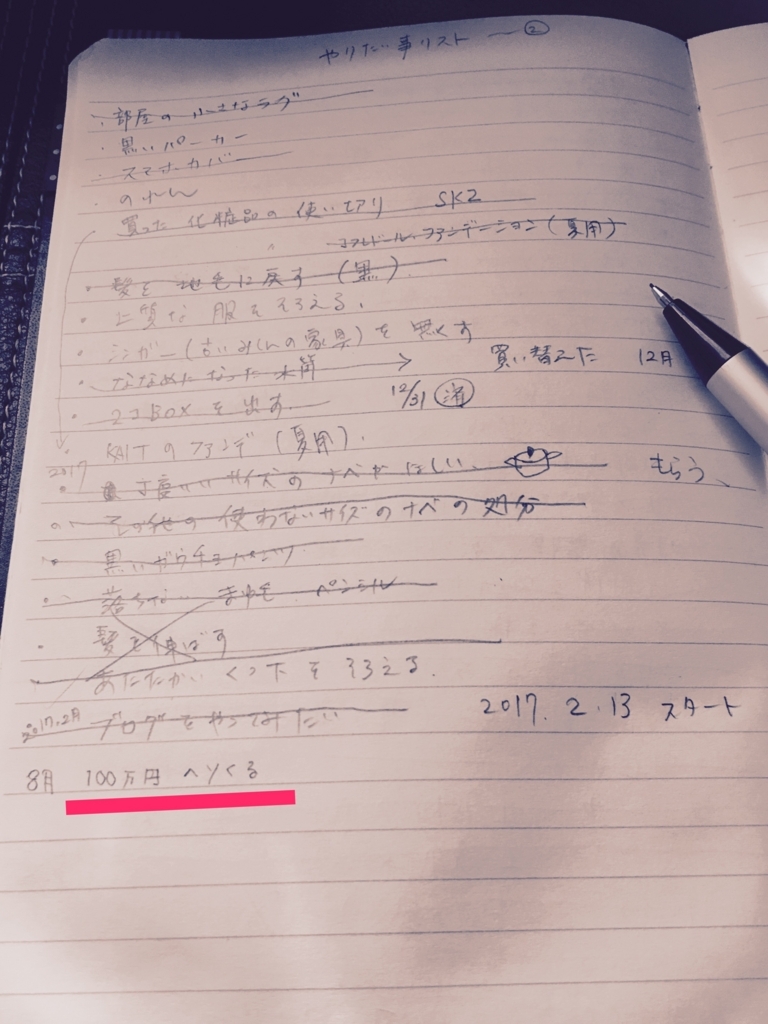 やりたい事リスト ー ②
・部屋の小さなラグ
・黒いパーカー
・スマホカバー
・のれん
買った化粧品の使いきり SK2
ファンデーション(夏用)
・髪を地毛に戻す(黒)
・上質な服をそろえる。
・シンガー(古いみしんの家具)を無くす
・ななめになった本箱 → 買い替えた 12月
・ココBOXを出す 12/31 済
KAITのファンデ(夏用)。
2017
・丁度いいサイズのナベがほしい、 もらう、
・その他の使わないサイズのナベの処分
・黒いガウチョパンツ
・落ちない まゆ毛 ペンシル
・髪を伸ばす
・あたたかいくつ下をそろえる。
2017.2月 ブログをやってみたい 2017.2.13 スタート
8月 100万円へソくる